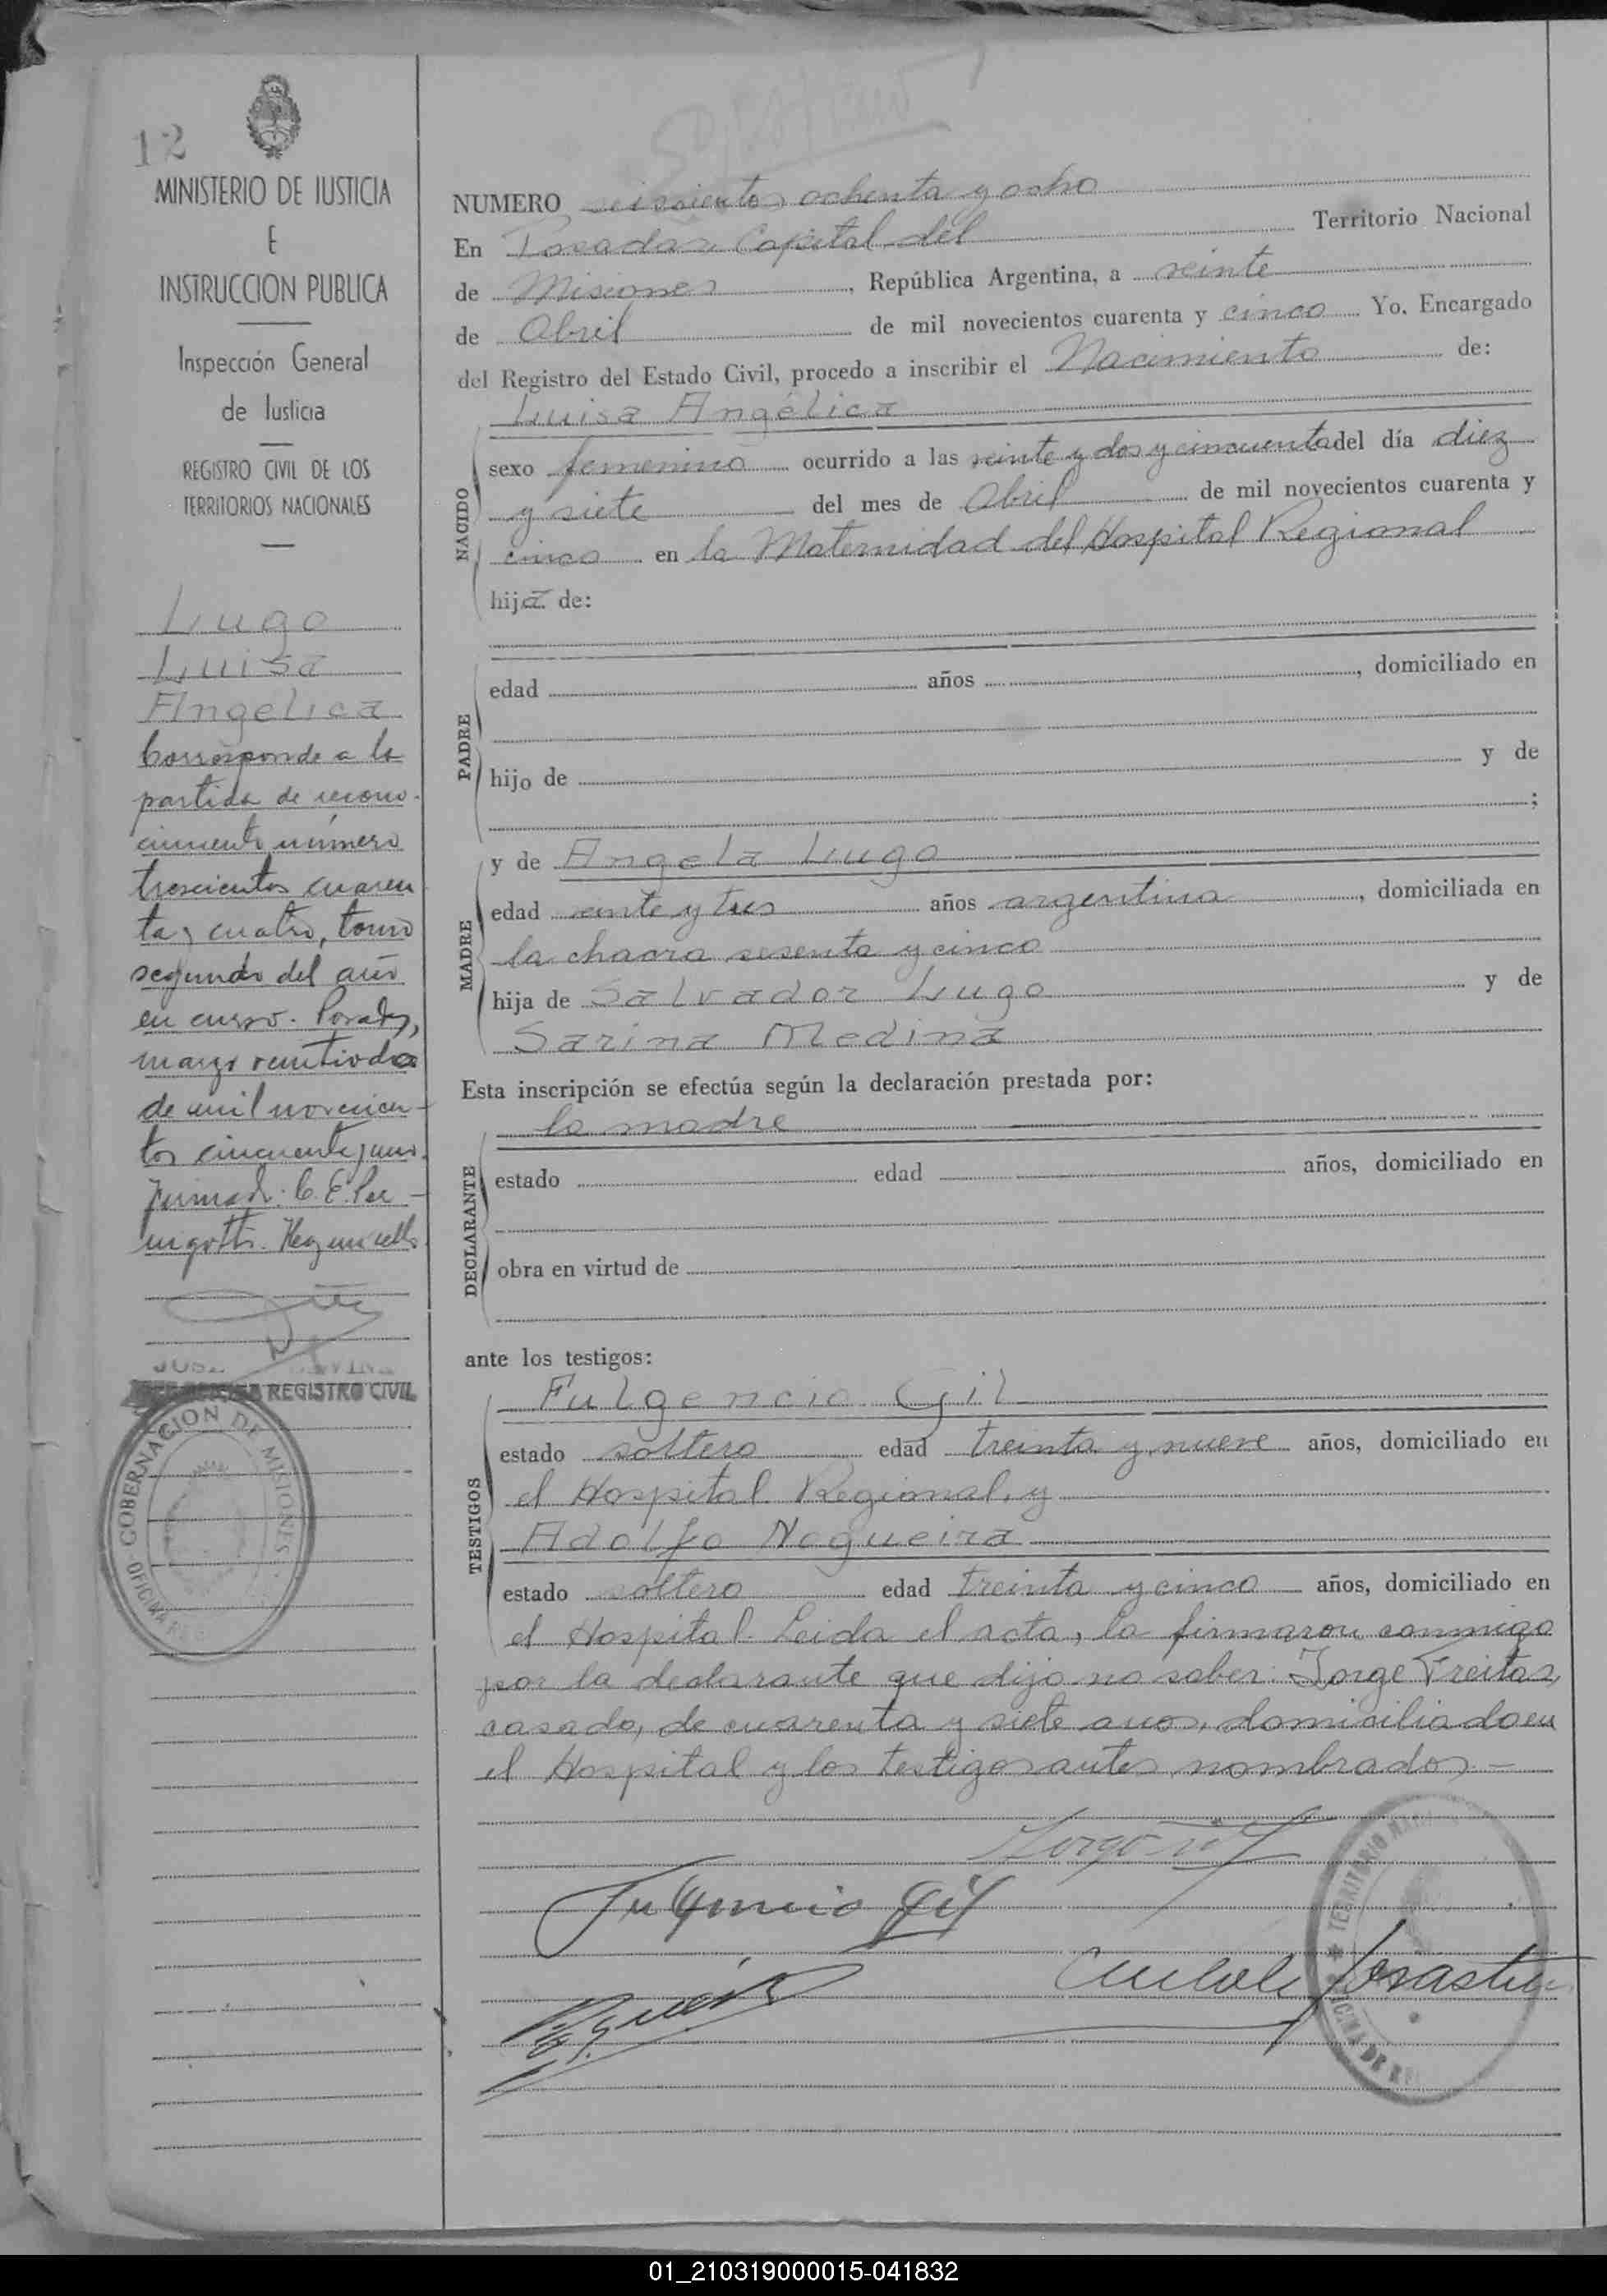 12
MINISTERIO DE JUSTICIA
E
INSTRUCCION PUBLICA
Inspección General
de Justicia
REGISTRO CIVIL DE LOS
TERRITORIOS NACIONALES
Lugo
Luisa
Angelica
Corresponde a la
partida de recono-
cimiento número
trescientos cuaren
ta y cuatro, tomo
segundo del año
en curso. Posadas,
marzo veintidos
de mil novecien-
tos cincuenta y uno.
Firmado: C. E.
REGISTRO CIVIL
GOBERNACION DE MISIONES
OFICINA
NUMERO seiscientos ochenta y ocho
En Posadas Capital del Territorio Nacional
de Misiones, República Argentina, a veinte
de Abril de mil novecientos cuarenta y cinco Yo, Encargado
del Registro del Estado Civil, procedo a inscribir el Nacimiento de:
Luisa Angélica
NACIDO
sexo femenino ocurrido a las veinte y dos y cincuenta del día diez
y siete del mes de Abril de mil novecientos cuarenta y
cinco en la Maternidad del Hospital Regional
hija de:
PADRE
edad años , domiciliado en
hijo de y de
;
MADRE
y de Angela Lugo
edad veinte y tres años argentina, domiciliada en
la chacra sesenta y cinco
hija de Salvador Lugo y de
Sarina Medina
Esta inscripción se efectúa según la declaración prestada por:
DECLARANTE
la madre
estado edad años, domiciliado en
obra en virtud de
ante los testigos:
TESTIGOS
Fulgencio Gil
estado soltero edad treinta y nueve años, domiciliado en
el Hospital Regional, y
Adolfo Nogueira
estado soltero edad treinta y cinco años, domiciliado en
el Hospital. Leida el acta, la firmaron conmigo
por la declarante que dijo no saber: Jorge Freitas,
casado, de cuarenta y siete anos, domiciliado en
el Hospital y los testigos antes nombrados.-
Fulgencio Gil
TERRITORIO
OFICINA DE
01_210319000015-041832